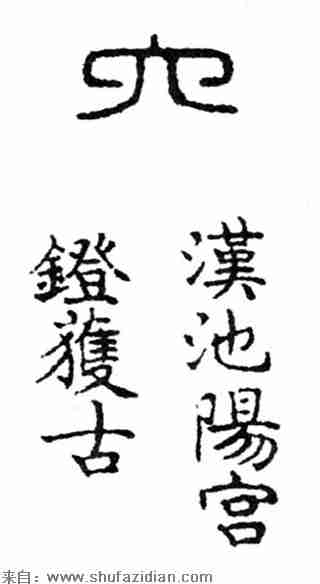 六
漢池陽宮
鐙獲古
来自：www.shufazidian.com